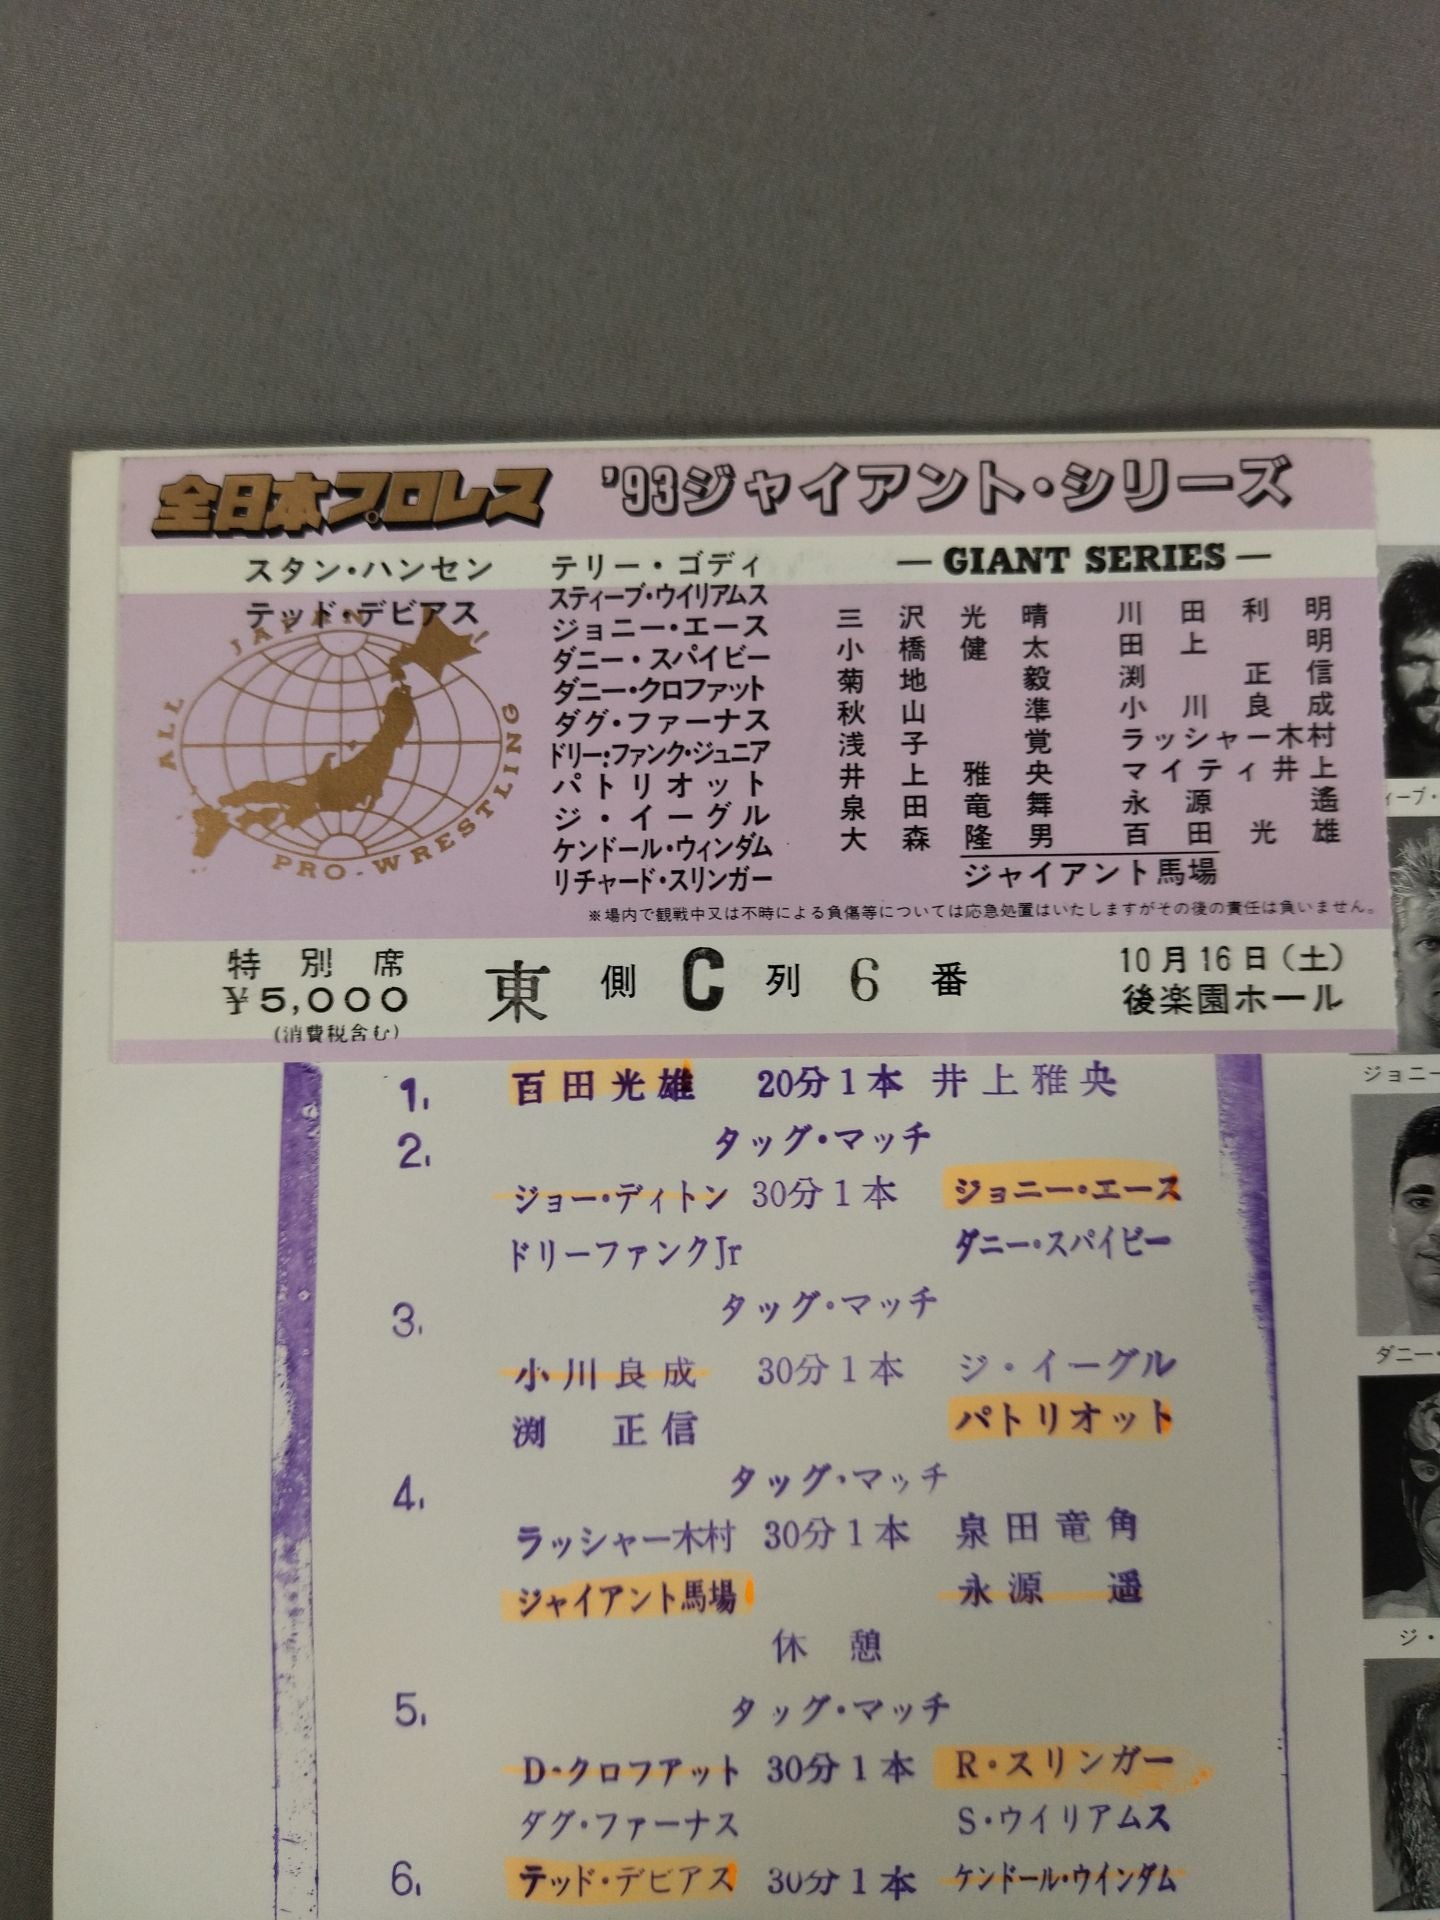 全日本プロレス '93ジャイアント・シリーズ
スタン・ハンセン
テッド・デビアス
ALL JAPAN PRO-WRESTLING
テリー・ゴディ
スティーブ・ウイリアムス
ジョニー・エース
ダニー・スパイビー
ダニー・クロファット
ダグ・ファーナス
ドリー・ファンク・ジュニア
パトリオット
ジ・イーグル
ケンドール・ウィンダム
リチャード・スリンガー
— GIANT SERIES —
三沢光晴 川田利明
小橋健太 田上明
菊地毅 渕正信
秋山準 小川良成
浅子覚 ラッシャー木村
井上雅央 マイティ井上
泉田竜舞 永源遙
大森隆男 百田光雄
ジャイアント馬場
※場内で観戦中又は不時による負傷等については応急処置はいたしますがその後の責任は負いません。
特別席
¥5,000
(消費税含む)
東側C列6番
10月16日(土)
後楽園ホール
1. 百田光雄 20分1本 井上雅央
2. タッグ・マッチ
ジョー・ディトン 30分1本 ジョニー・エース
ドリーファンクJr ダニー・スパイビー
3. タッグ・マッチ
小川良成 30分1本 ジ・イーグル
渕正信 パトリオット
4. タッグ・マッチ
ラッシャー木村 30分1本 泉田竜角
ジャイアント馬場 永源遥
休憩
5. タッグ・マッチ
D・クロフアット 30分1本 R・スリンガー
ダグ・ファーナス S・ウイリアムス
6. テッド・デビアス 30分1本 ケンドール・ウインダム
ィーブ・
ジョニー
ダニー・
ジ・